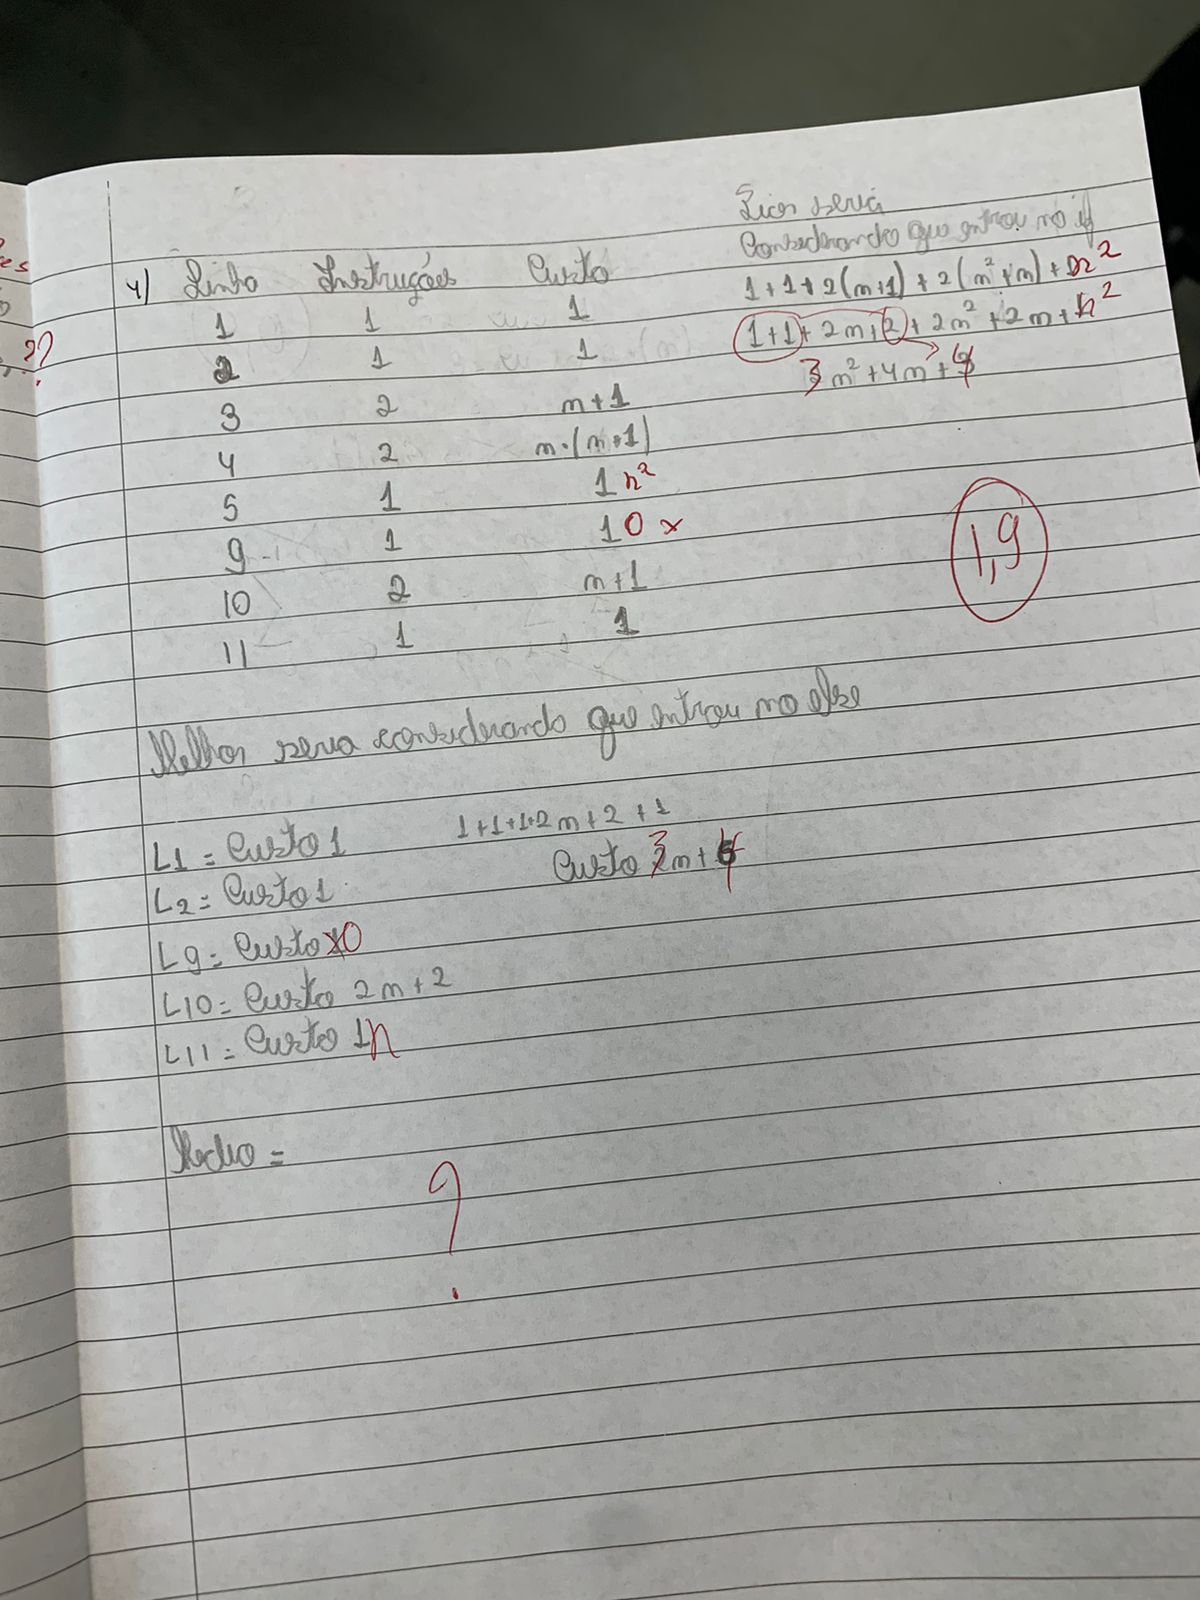 es
??
4) Linha Instruções Custo
1 1 1
2 1 1
3 2 m+1
4 2 m·(m+1)
5 1 1 n²
9 1 1 0 x
10 2 m+1
11 1 1
Pior seria
Considerando que entrou no if
1+1+2(m+1)+2(m²+m)+n²
1+1+2m+2+2m²+2m+n²
3m²+4m+4
1,9
Melhor seria considerando que entrou no else
L1 = Custo 1 1+1+1+2m+2+1
Custo 3m+4
L2 = Custo 1
L9 = Custo 0
L10 = Custo 2m+2
L11 = Custo 1n
Medio =
?